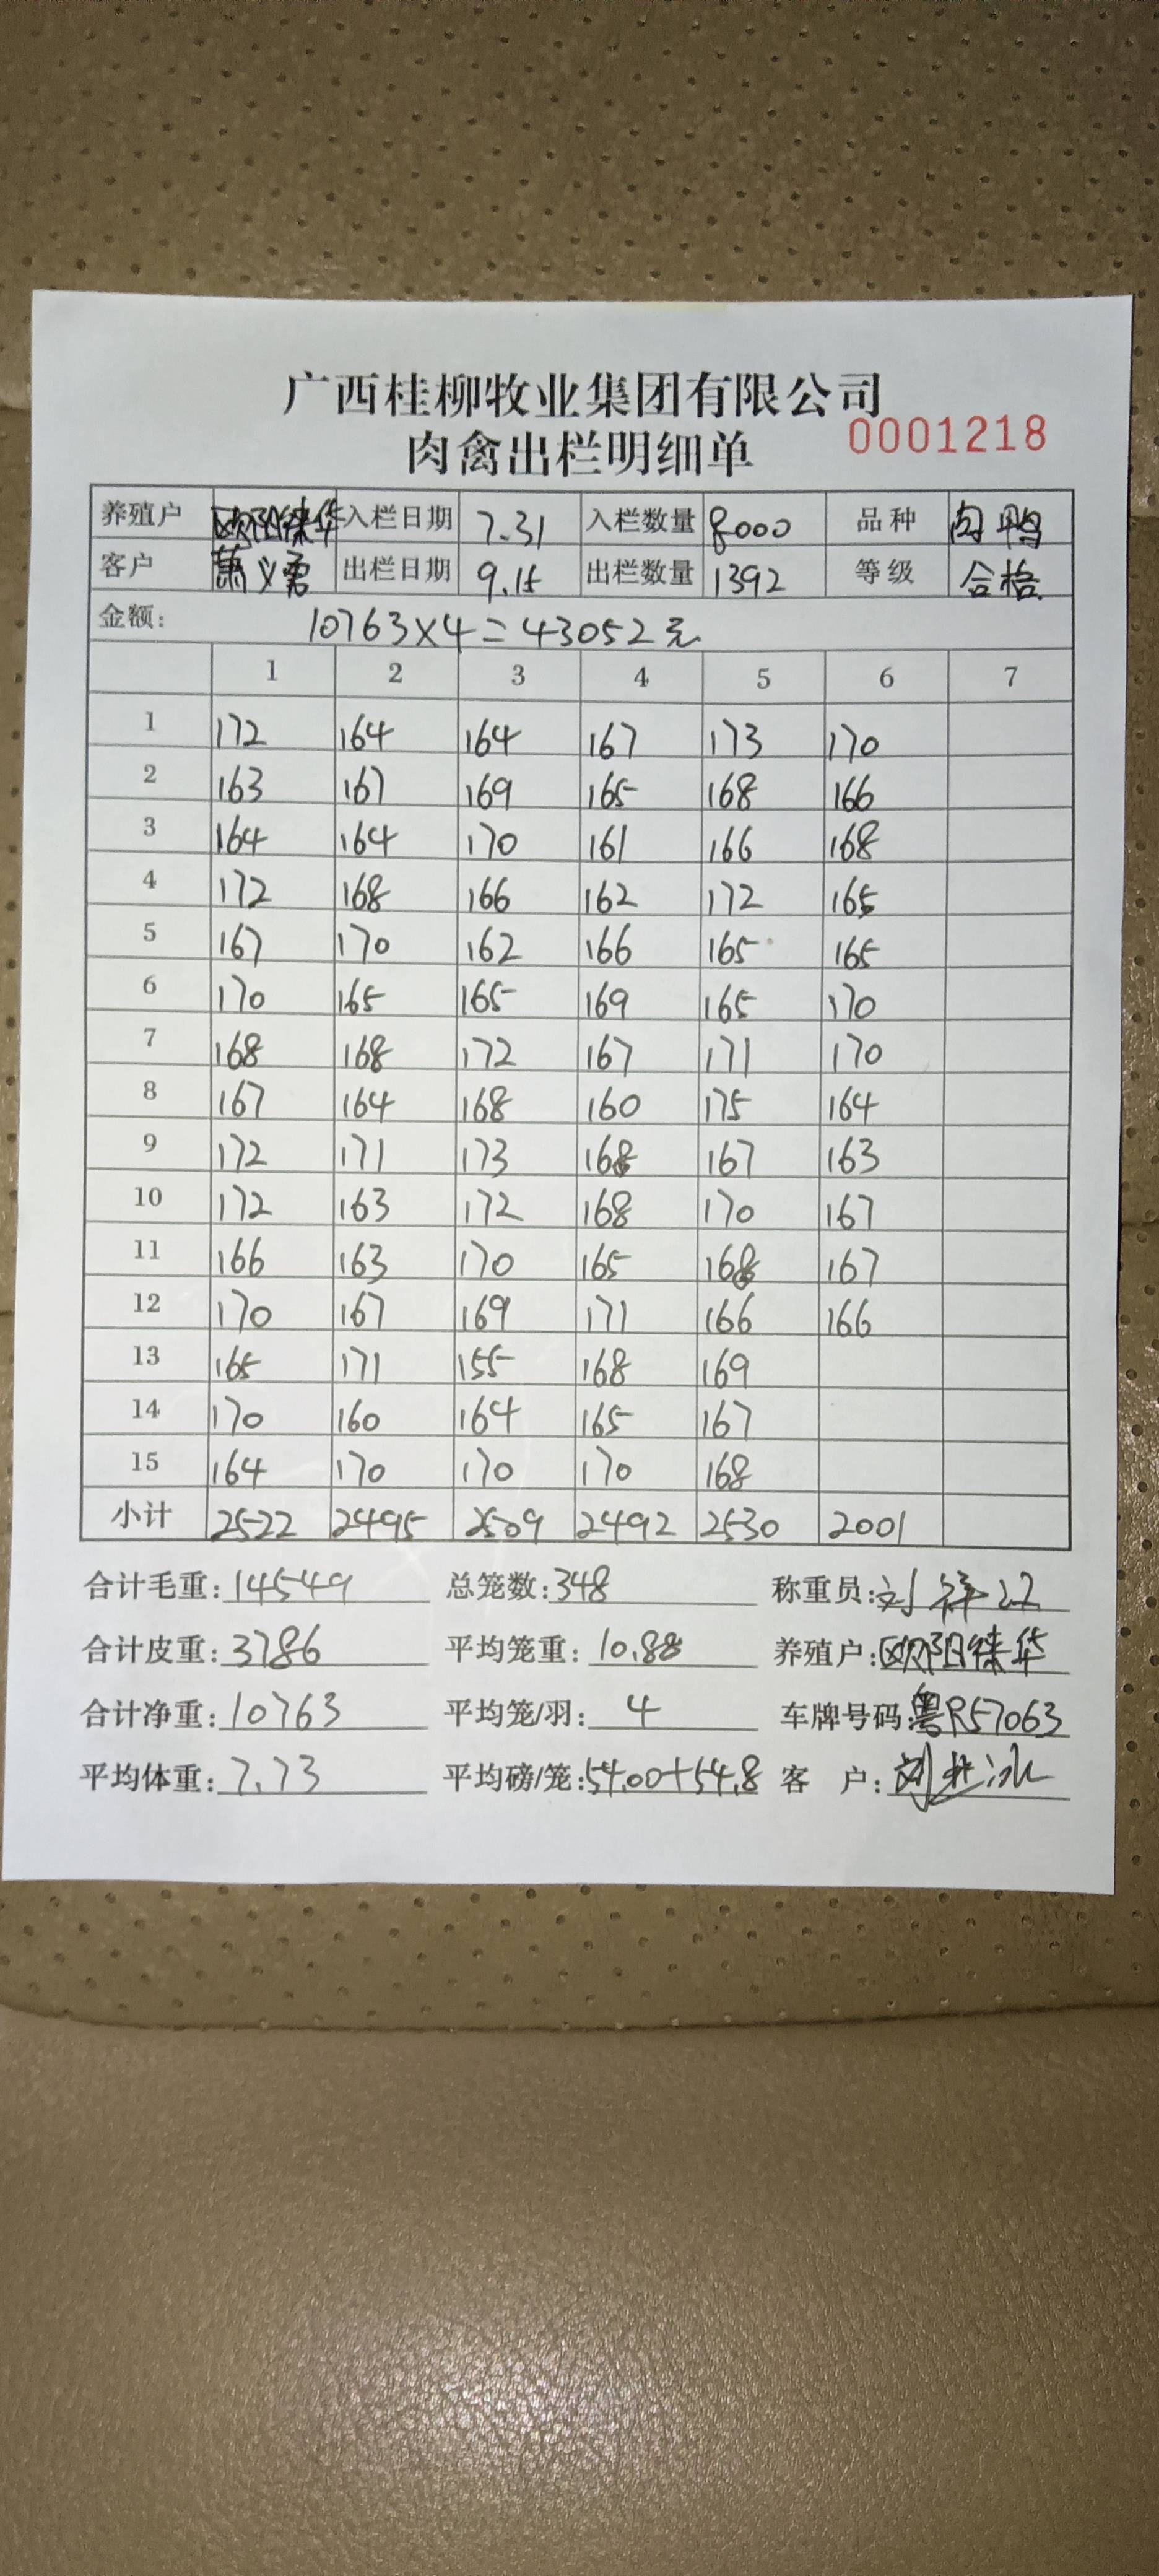 广西桂柳牧业集团有限公司
肉禽出栏明细单 0001218
养殖户 欧阳徕华 入栏日期 7.31 入栏数量 8000 品种 肉鸭
客户 萧义勇 出栏日期 9.15 出栏数量 1392 等级 合格
金额: 10763×4=43052元
1 2 3 4 5 6 7
1 172 164 164 167 173 170
2 163 167 169 165 168 166
3 164 164 170 161 166 168
4 172 168 166 162 172 165
5 167 170 162 166 165 165
6 170 165 165 169 165 170
7 168 168 172 167 171 170
8 167 164 168 160 175 164
9 172 171 173 168 167 163
10 172 163 172 168 170 167
11 166 163 170 165 168 167
12 170 167 169 171 166 166
13 165 171 155 168 169
14 170 160 164 165 167
15 164 170 170 170 168
小计 2522 2495 2509 2492 2530 2001
合计毛重: 14549 总笼数: 348 称重员: 刘祥
合计皮重: 3786 平均笼重: 10.88 养殖户: 欧阳徕华
合计净重: 10763 平均笼/羽: 4 车牌号码: 粤R57063
平均体重: 7.73 平均磅/笼: 54.00+54.8 客 户: 刘